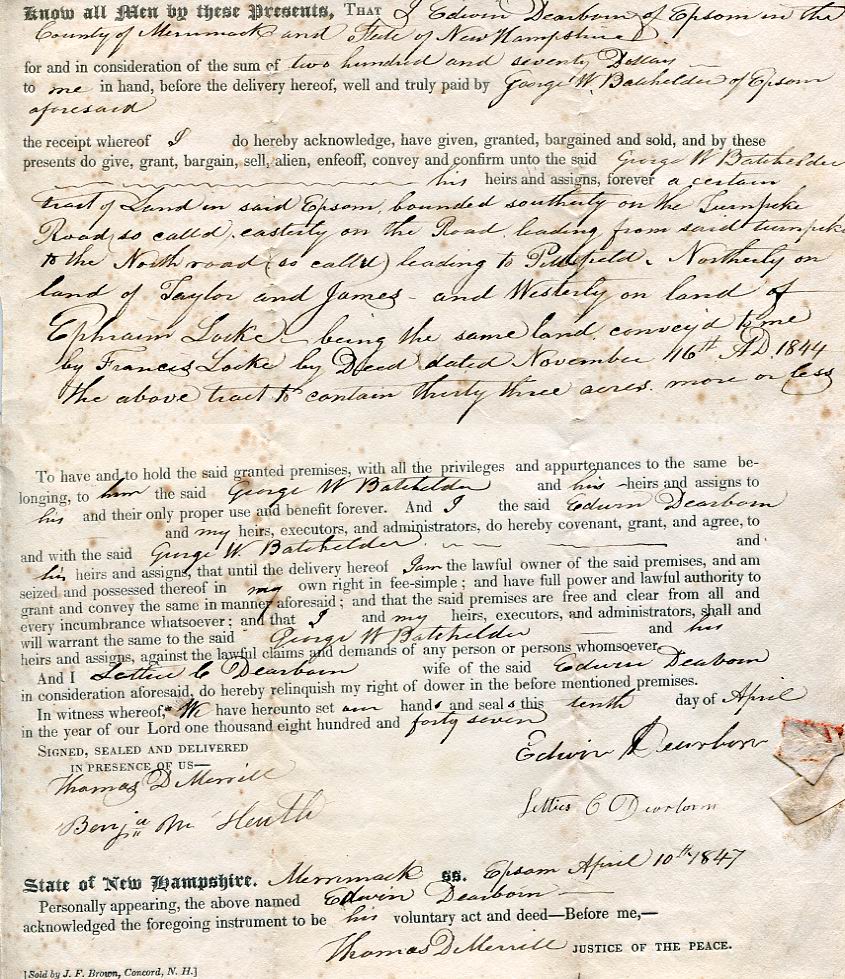 Know all Men by these Presents, THAT I Edwin Dearborn of Epsom in the
County of Merrimack and State of New Hampshire
for and in consideration of the sum of two hundred and seventy Dollars
to me in hand, before the delivery hereof, well and truly paid by George W. Batchelder of Epsom
aforesaid
the receipt whereof I do hereby acknowledge, have given, granted, bargained and sold, and by these
presents do give, grant, bargain, sell, alien, enfeoff, convey and confirm unto the said George W Batchelder
his heirs and assigns, forever a certain
tract of Land in said Epsom, bounded southerly on the Turnpike
Road so calld. easterly on the Road leading from said turnpike
to the North road (so calld) leading to Pittsfield, Northerly on
land of Taylor and James - and Westerly on land of
Ephraim Locke - being the same land convey'd to me
by Francis Locke by Deed dated November 16th AD 1844
the above tract to contain thirty three acres more or less
To have and to hold the said granted premises, with all the privileges and appurtenances to the same be-
longing, to him the said George W Batchelder and his heirs and assigns to
his and their only proper use and benefit forever. And I the said Edwin Dearborn
and my heirs, executors, and administrators, do hereby covenant, grant, and agree, to
and with the said George W. Batchelder and
his heirs and assigns, that until the delivery hereof I am the lawful owner of the said premises, and am
seized and possessed thereof in my own right in fee-simple; and have full power and lawful authority to
grant and convey the same in manner aforesaid; and that the said premises are free and clear from all and
every incumbrance whatsoever; and that I and my heirs, executors, and administrators, shall and
will warrant the same to the said George W Batchelder and his
heirs and assigns, against the lawful claims and demands of any person or persons whomsoever.
And I Lettice C Dearborn wife of the said Edwin Dearborn
in consideration aforesaid, do hereby relinquish my right of dower in the before mentioned premises.
In witness whereof, We have hereunto set our hands and seals this tenth day of April
in the year of our Lord one thousand eight hundred and forty seven
SIGNED, SEALED AND DELIVERED
IN PRESENCE OF US—
Edwin Dearborn
Thomas D Merrill
Lettice C Dearborn
Benja M Heath
State of New Hampshire. Merrimack ss. Epsom April 10th 1847
Personally appearing, the above named Edwin Dearborn
acknowledged the foregoing instrument to be his voluntary act and deed—Before me,—
Thomas D Merrill JUSTICE OF THE PEACE.
[Sold by J. F. Brown, Concord, N. H.]